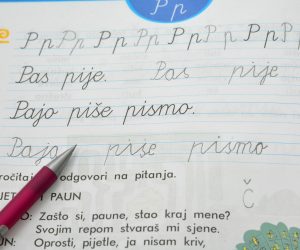 P p
P p P p P p P p P p P p P p P
Pas pije. Pas pije
Pajo piše pismo.
Pajo piše pismo
odgovori na pitanja.
I PAUN
Zašto si, paune, stao kraj mene?
Č
Svojim repom stvaraš mi sjene.
Oprosti, pijetle, ja nisam kriv,